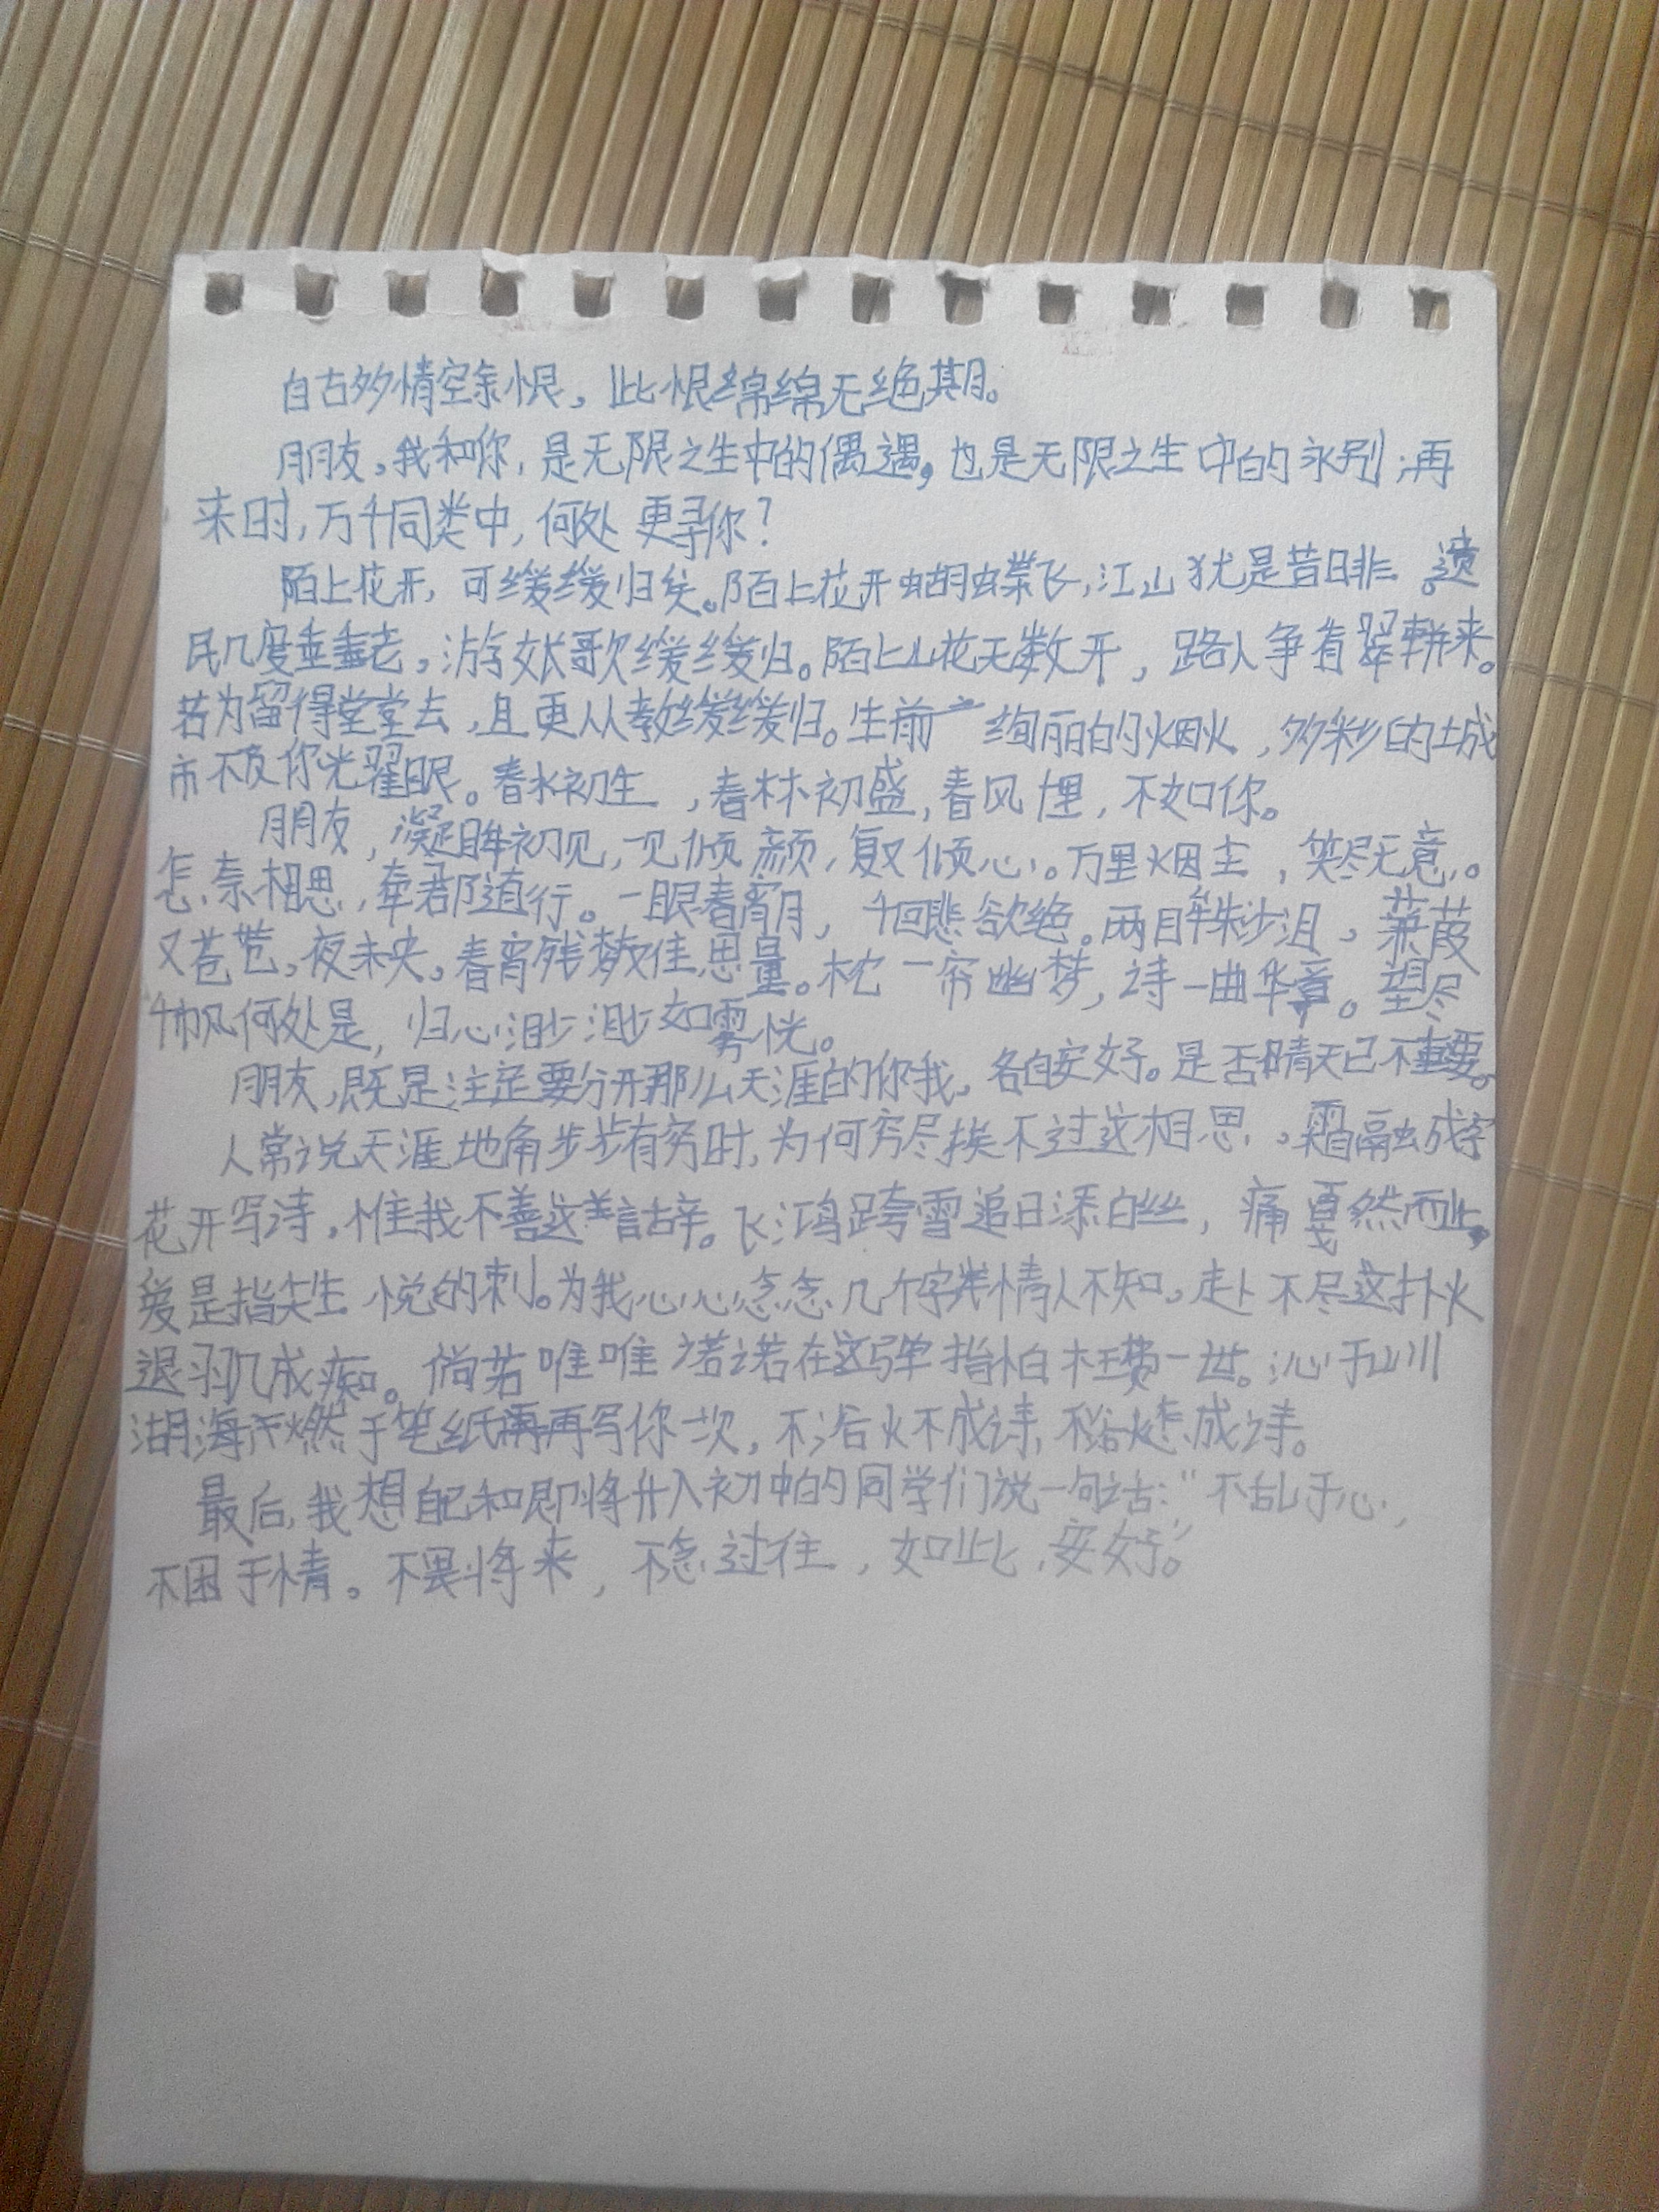 自古多情空余恨，此恨绵绵无绝期。
朋友，我和你，是无限之生中的偶遇，也是无限之生中的永别；再
来时，万千同类中，何处更寻你？
陌上花开，可缓缓归矣。陌上花开蝴蝶飞，江山犹是昔日非。遗
民几度垂垂老，游女长歌缓缓归。陌上山花无数开，路人争看翠軿来。
若为留得堂堂去，且更从教缓缓归。生前 绚丽的烟火，多彩的城
市不及你光耀眼。春水初生，春林初盛，春风埋，不如你。
朋友，凝眸初见，一见倾颜，复又倾心。万里烟尘，笑尽无意。
怎奈相思，牵君郡道行。一眼春宵月，千回悲欲绝。两眸朱沙泪，蒹葭
又苍苍，夜未央。春宵残梦敌佳思量。枕一帘幽梦，诗一曲华章。望尽
千帆何处是，归心渺渺如雾恍。
朋友，既是注定要分开那么天涯的你我，各自安好。是否晴天已不重要。
人常说天涯地角步步有穷时，为何穷尽挨不过这相思，霜融成字
花开写诗，惟我不善这诰辞。飞鸿跨雪追日添白丝，痛戛然而止，
爱是指尖生悦的刺。为我心心念念几个字类情人不知，赴不尽这扑火
退羽几成痴。倘若唯唯诺诺在这弹指怕枉费一世。沁于山川
湖海燃于笔纸再写你一次，不浴火不成诗，不浴火怎成诗。
最后，我想自己和即将升入初中的同学们说一句话：“不乱于心，
不困于情。不畏将来，不念过往，如此，安好。”